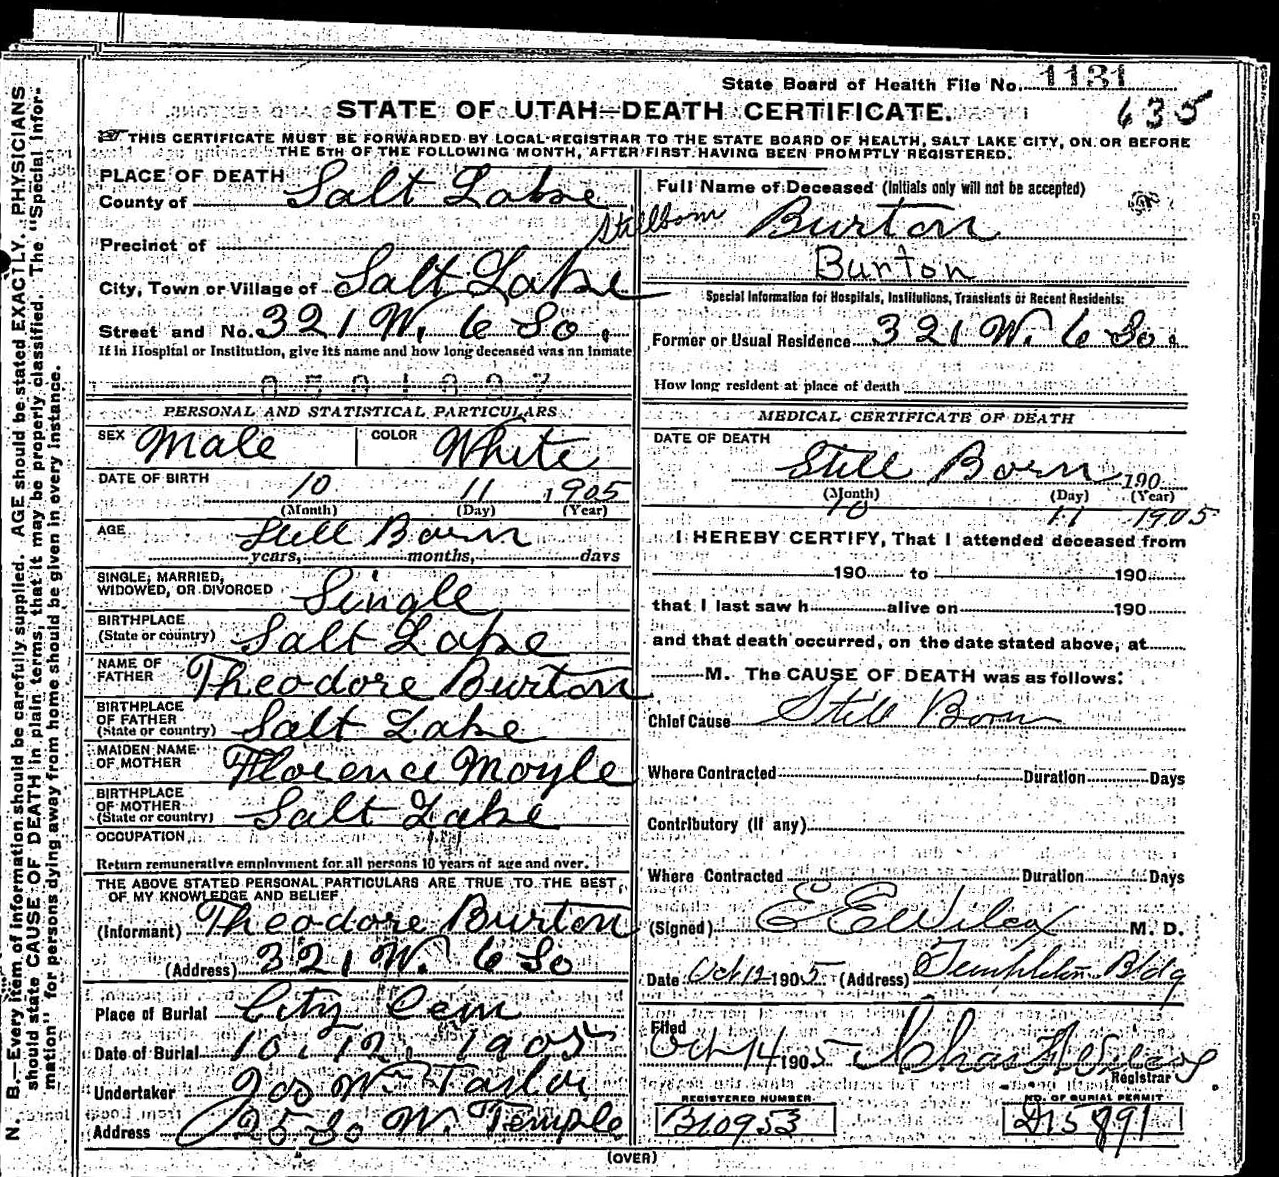 State Board of Health File No. 1131
635
STATE OF UTAH—DEATH CERTIFICATE.
THIS CERTIFICATE MUST BE FORWARDED BY LOCAL REGISTRAR TO THE STATE BOARD OF HEALTH, SALT LAKE CITY, ON OR BEFORE
THE 5TH OF THE FOLLOWING MONTH, AFTER FIRST HAVING BEEN PROMPTLY REGISTERED.
N. B.—Every item of information should be carefully supplied. AGE should be stated EXACTLY. PHYSICIANS
should state CAUSE OF DEATH in plain terms, that it may be properly classified. The "Special Infor-
mation" for persons dying away from home should be given in every instance.
PLACE OF DEATH
County of Salt Lake
Precinct of
City, Town or Village of Salt Lake
Street and No. 321 W. 6 So.
If in Hospital or Institution, give its name and how long deceased was an inmate
PERSONAL AND STATISTICAL PARTICULARS
SEX Male COLOR White
DATE OF BIRTH 10 11 1905
(Month) (Day) (Year)
AGE Still Born
years, months, days
SINGLE, MARRIED,
WIDOWED, OR DIVORCED Single
BIRTHPLACE
(State or country) Salt Lake
NAME OF
FATHER Theodore Burton
BIRTHPLACE
OF FATHER
(State or country) Salt Lake
MAIDEN NAME
OF MOTHER Florence Moyle
BIRTHPLACE
OF MOTHER
(State or country) Salt Lake
OCCUPATION
Return remunerative employment for all persons 10 years of age and over.
THE ABOVE STATED PERSONAL PARTICULARS ARE TRUE TO THE BEST
OF MY KNOWLEDGE AND BELIEF
(Informant) Theodore Burton
(Address) 321 W. 6 So
Place of Burial City Cem
Date of Burial 10. 12. 1905
Undertaker Jos W. Taylor
Address 25 So W. Temple
Full Name of Deceased (Initials only will not be accepted)
Stillborn Burton
Burton
Special Information for Hospitals, Institutions, Transients or Recent Residents:
Former or Usual Residence 321 W. 6 So.
How long resident at place of death
MEDICAL CERTIFICATE OF DEATH
DATE OF DEATH
Still Born 190
(Month) (Day) (Year)
10 11 1905
I HEREBY CERTIFY, That I attended deceased from
190 to 190
that I last saw h alive on 190
and that death occurred, on the date stated above, at
M. The CAUSE OF DEATH was as follows:
Chief Cause Still Born
Where Contracted Duration Days
Contributory (if any)
Where Contracted Duration Days
(Signed) E E Wilcox M. D.
Date Oct 12 1905 (Address) Templeton Bldg
Filed
Oct 14 1905
Registrar
REGISTERED NUMBER NO. OF BURIAL PERMIT
B10953
(OVER)